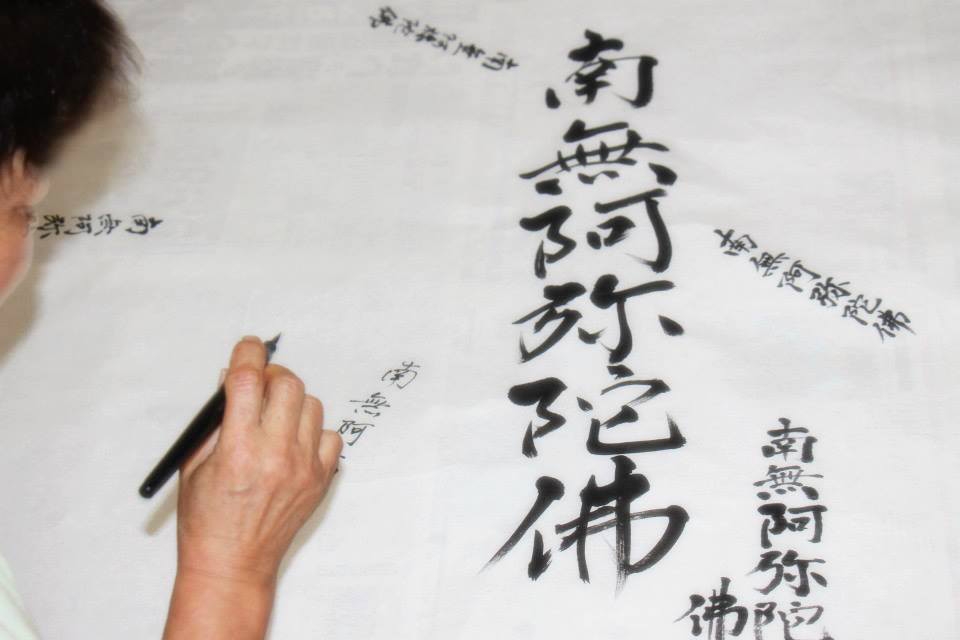 南無阿弥陀佛
南無阿弥陀佛
南無阿弥陀佛
南無阿弥陀
佛
南無阿弥
南無阿